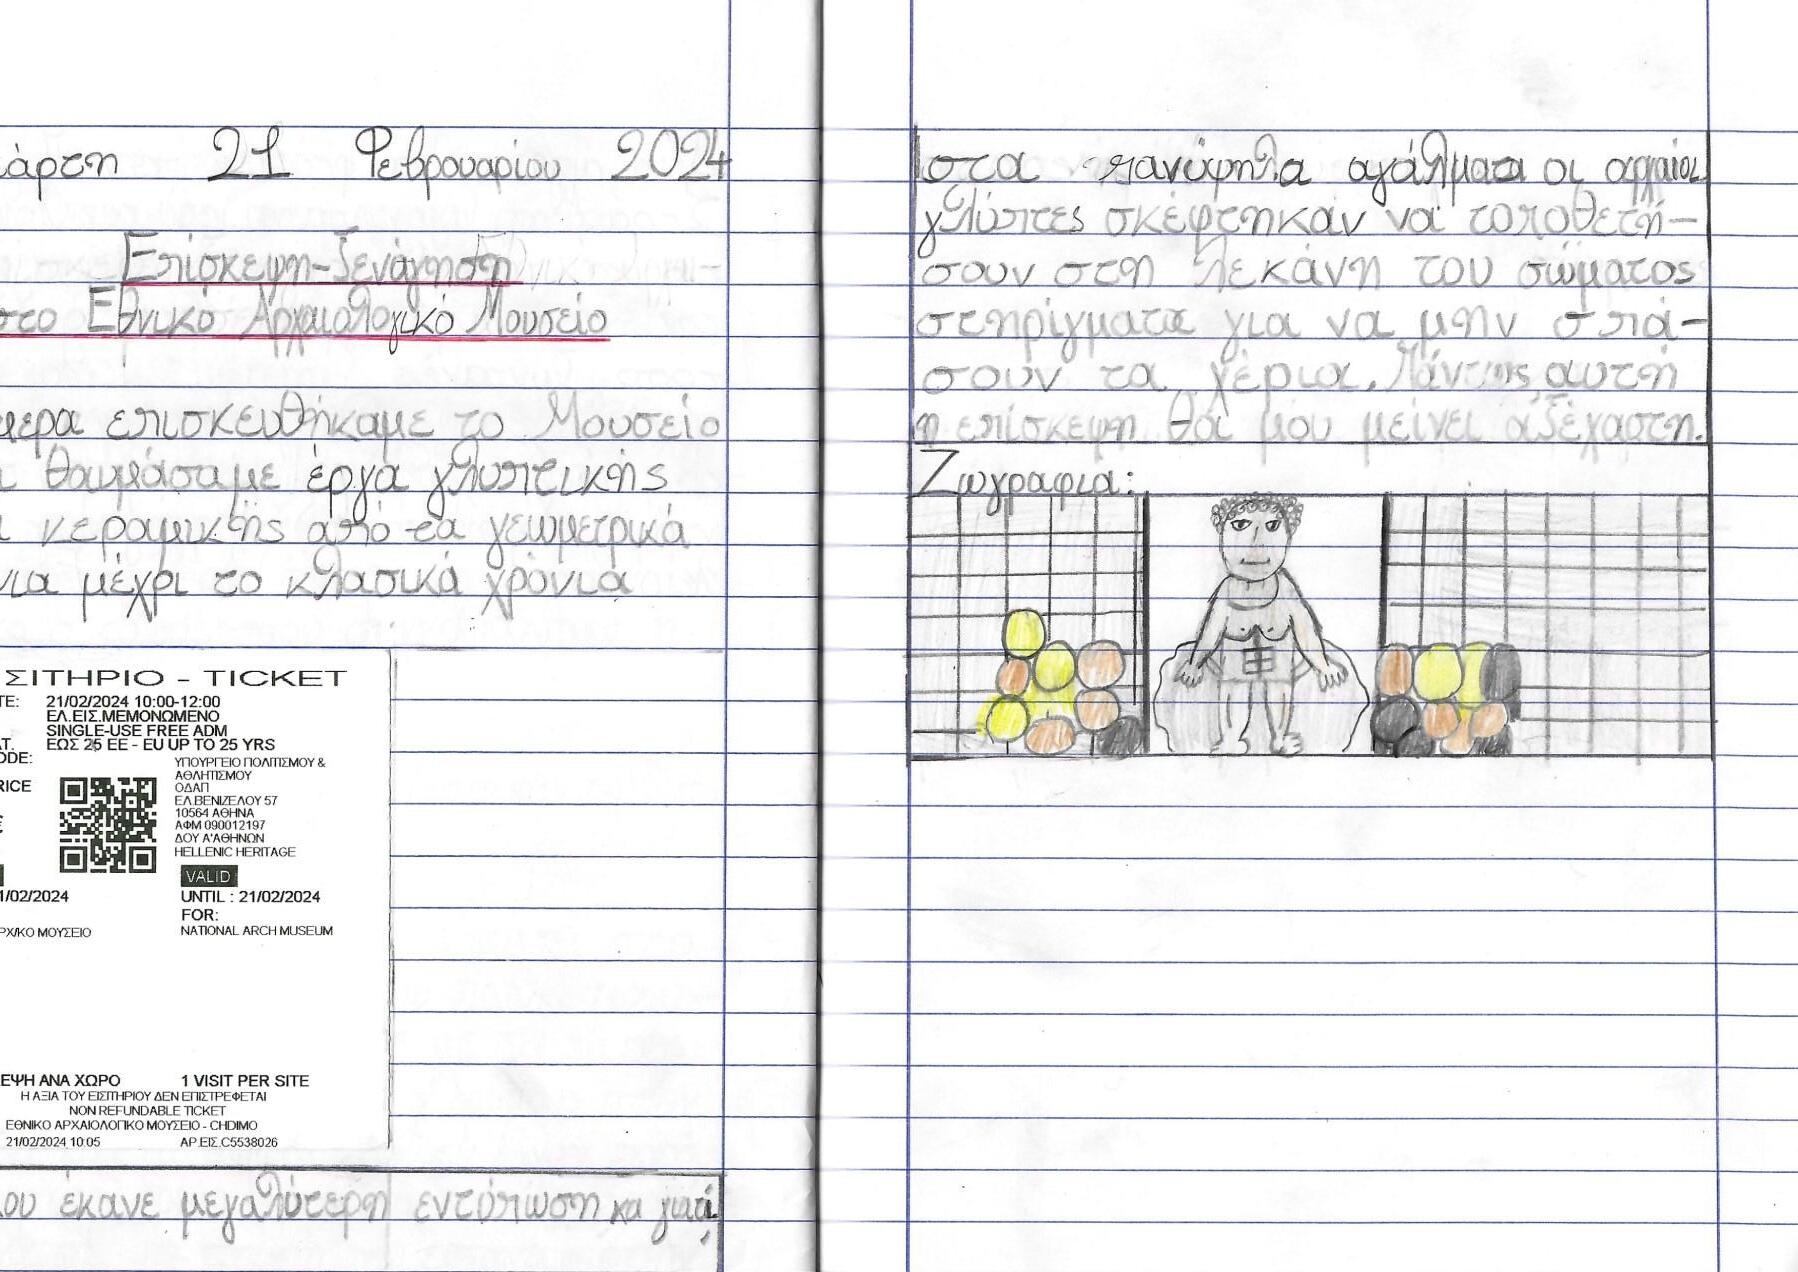 άρτη 21 Φεβρουαρίου 2024
Επίσκεψη-Ξενάγηση
στο Εθνικό Αρχαιολογικό Μουσείο
μερα επισκευθήκαμε το Μουσείο
ι θαυμάσαμε έργα γλυπτικής
ι κεραμικής από τα γεωμετρικά
νια μέχρι το κλασικά χρόνια
ΣΙΤΗΡΙΟ - TICKET
TE: 21/02/2024 10:00-12:00
ΕΛ.ΕΙΣ.ΜΕΜΟΝΩΜΕΝΟ
SINGLE-USE FREE ADM
AT. ΕΩΣ 25 ΕΕ - EU UP TO 25 YRS
ODE:
ΥΠΟΥΡΓΕΙΟ ΠΟΛΙΤΙΣΜΟΥ &
ΑΘΛΗΤΙΣΜΟΥ
RICE
ΟΔΑΠ
ΕΛ.ΒΕΝΙΖΕΛΟΥ 57
10564 ΑΘΗΝΑ
ΑΦΜ 090012197
ΔΟΥ Α'ΑΘΗΝΩΝ
HELLENIC HERITAGE
VALID
1/02/2024 UNTIL : 21/02/2024
FOR:
ΡΧ/ΚΟ ΜΟΥΣΕΙΟ NATIONAL ARCH MUSEUM
ΕΨΗ ΑΝΑ ΧΩΡΟ 1 VISIT PER SITE
Η ΑΞΙΑ ΤΟΥ ΕΙΣΙΤΗΡΙΟΥ ΔΕΝ ΕΠΙΣΤΡΕΦΕΤΑΙ
NON REFUNDABLE TICKET
ΕΘΝΙΚΟ ΑΡΧΑΙΟΛΟΓΙΚΟ ΜΟΥΣΕΙΟ - CHDIMO
21/02/2024 10:05 ΑΡ.ΕΙΣ.C5538026
ου έκανε μεγαλύτερη εντύπωση και γιατί;
στα πανύψηλα αγάλματα οι αρχαίοι
γλύπτες σκέφτηκαν να τοποθετή-
σουν στη λεκάνη του σώματος
στηρίγματα για να μην σπά-
σουν τα χέρια. Πάντως αυτή
η επίσκεψη θα μου μείνει αξέχαστη.
Ζωγραφια: